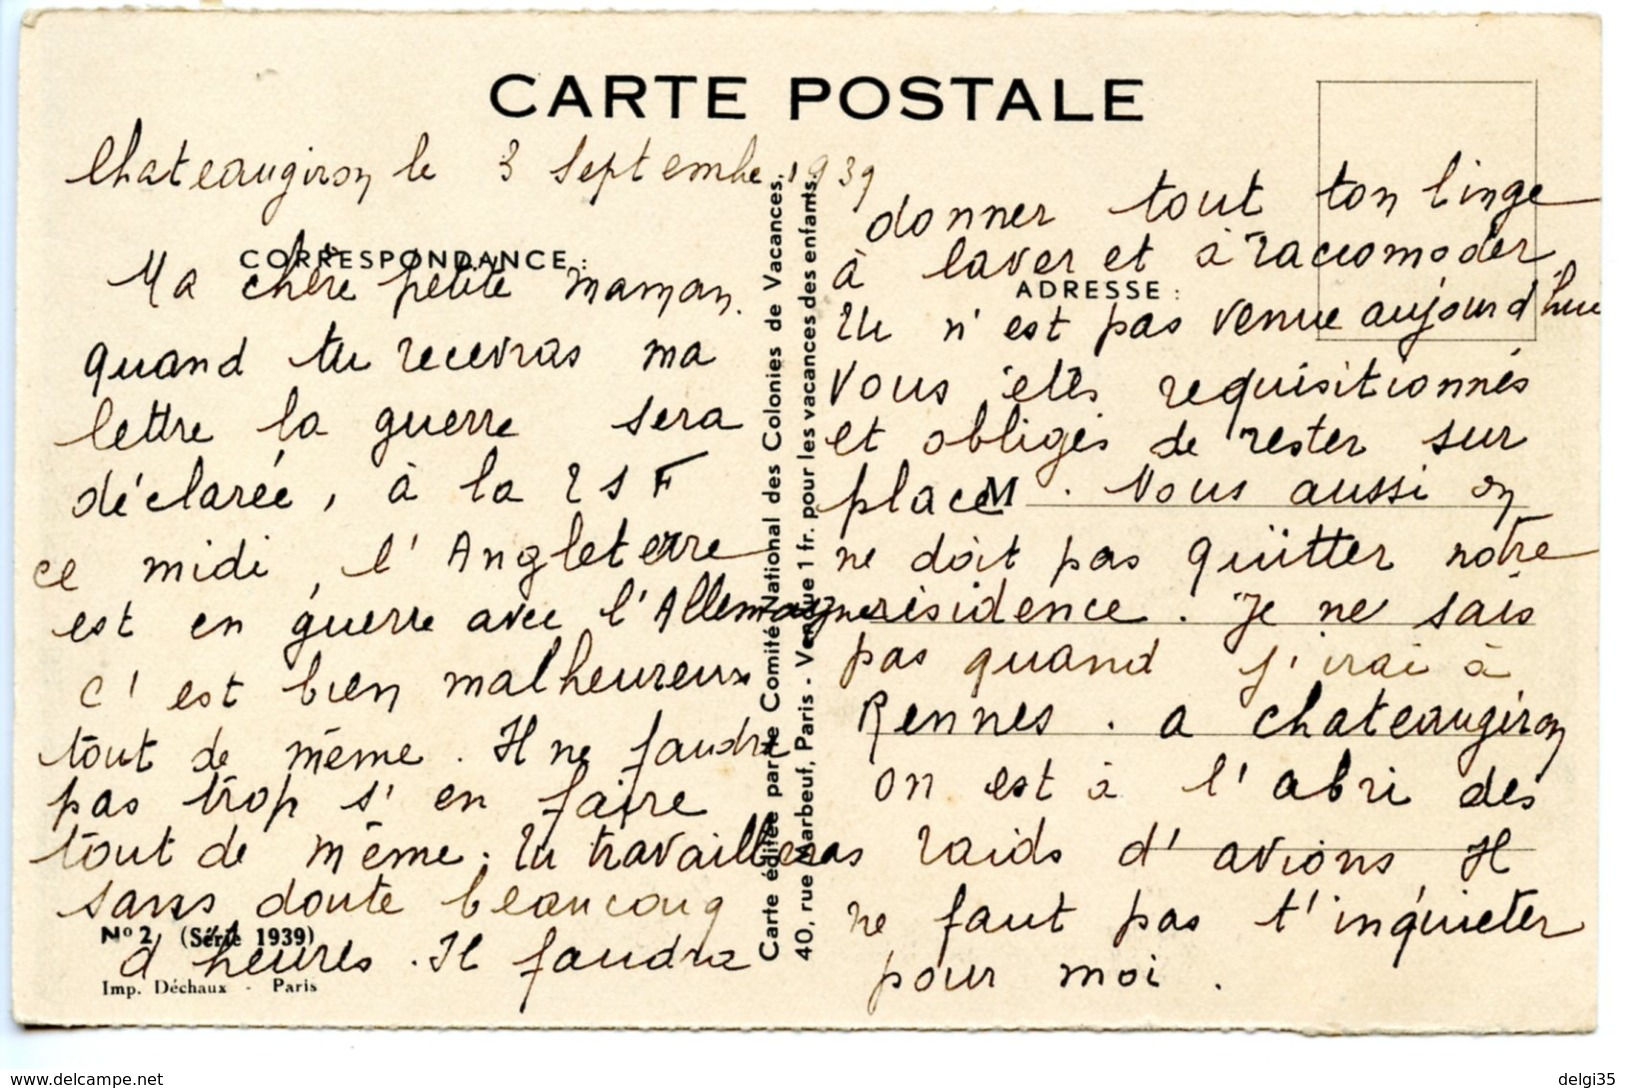 CARTE POSTALE
Chateaugiron le 3 Septembre 1939
CORRESPONDANCE :
Ma chère petite maman.
quand tu recevras ma
lettre la guerre sera
déclarée, à la TSF
ce midi, l'Angleterre
est en guerre avec l'Allemagne
c'est bien malheureux
tout de même. Il ne faudra
pas trop s'en faire
tout de même. Tu travailleras
sans doute beaucoup
d'heures. Il faudra
No 2 (Série 1939)
Imp. Déchaux - Paris
Carte éditée par le Comité National des Colonies de Vacances,
40, rue Marbeuf, Paris - Vendue 1 fr. pour les vacances des enfants.
donner tout ton linge
à laver et à raccomoder
ADRESSE :
Tu n'est pas venue aujourd'hui
Vous êtes requisitionnés
et obligés de rester sur
place. Nous aussi on
ne doit pas quitter notre
résidence. Je ne sais
pas quand j'irai à
Rennes. a chateaugiron
on est à l'abri des
raids d'avions Il
ne faut pas t'inquieter
pour moi.
www.delcampe.net
delgi35